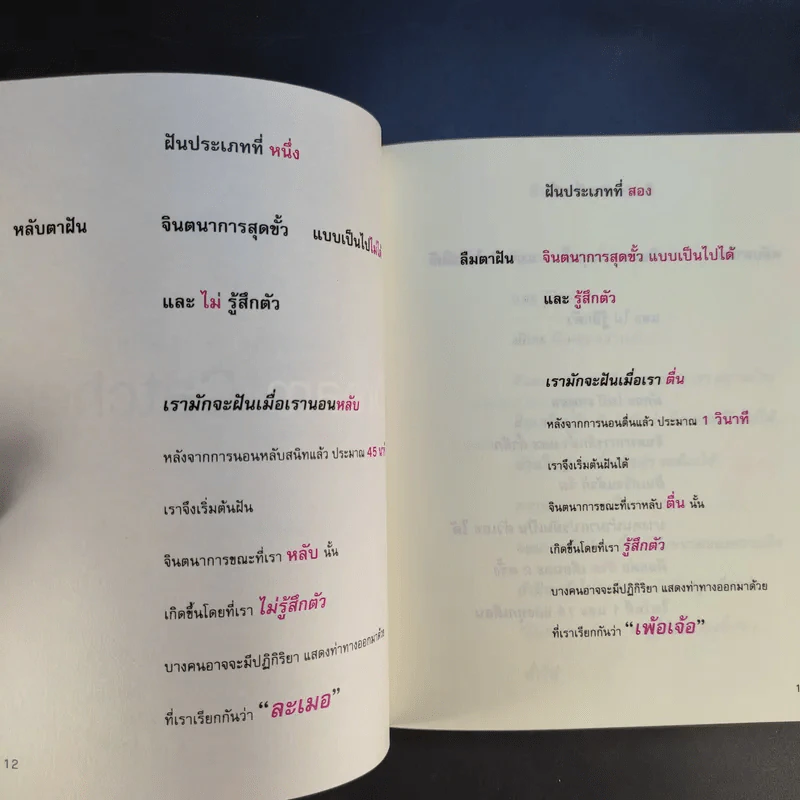 ฝันประเภทที่ หนึ่ง
หลับตาฝัน จินตนาการสุดขั้ว แบบเป็นไปไม่ได้
และ ไม่ รู้สึกตัว
เรามักจะฝันเมื่อเรานอนหลับ
หลังจากการนอนหลับสนิทแล้ว ประมาณ 45
เราจึงเริ่มต้นฝัน
จินตนาการขณะที่เรา หลับ นั้น
เกิดขึ้นโดยที่เรา ไม่รู้สึกตัว
บางคนอาจจะมีปฏิกิริยา แสดงท่าทางออกมาด้วย
ที่เราเรียกกันว่า “ละเมอ”
12
ฝันประเภทที่ สอง
ลืมตาฝัน จินตนาการสุดขั้ว แบบเป็นไปได้
และ รู้สึกตัว
เรามักจะฝันเมื่อเรา ตื่น
หลังจากการนอนตื่นแล้ว ประมาณ 1 วินาที
เราจึงเริ่มต้นฝันได้
จินตนาการขณะที่เราหลับ ตื่น นั้น
เกิดขึ้นโดยที่เรา รู้สึกตัว
บางคนอาจจะมีปฏิกิริยา แสดงท่าทางออกมาด้วย
ที่เราเรียกกันว่า “เพ้อเจ้อ”